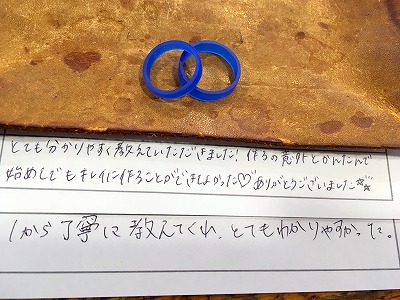 とても分かりやすく教えていただきました！作るの意外とかんたんで
始めてでもキレイに作ることができてよかった♡ありがとうございました☆☆
1から丁寧に教えてくれ、とてもわかりやすかった。